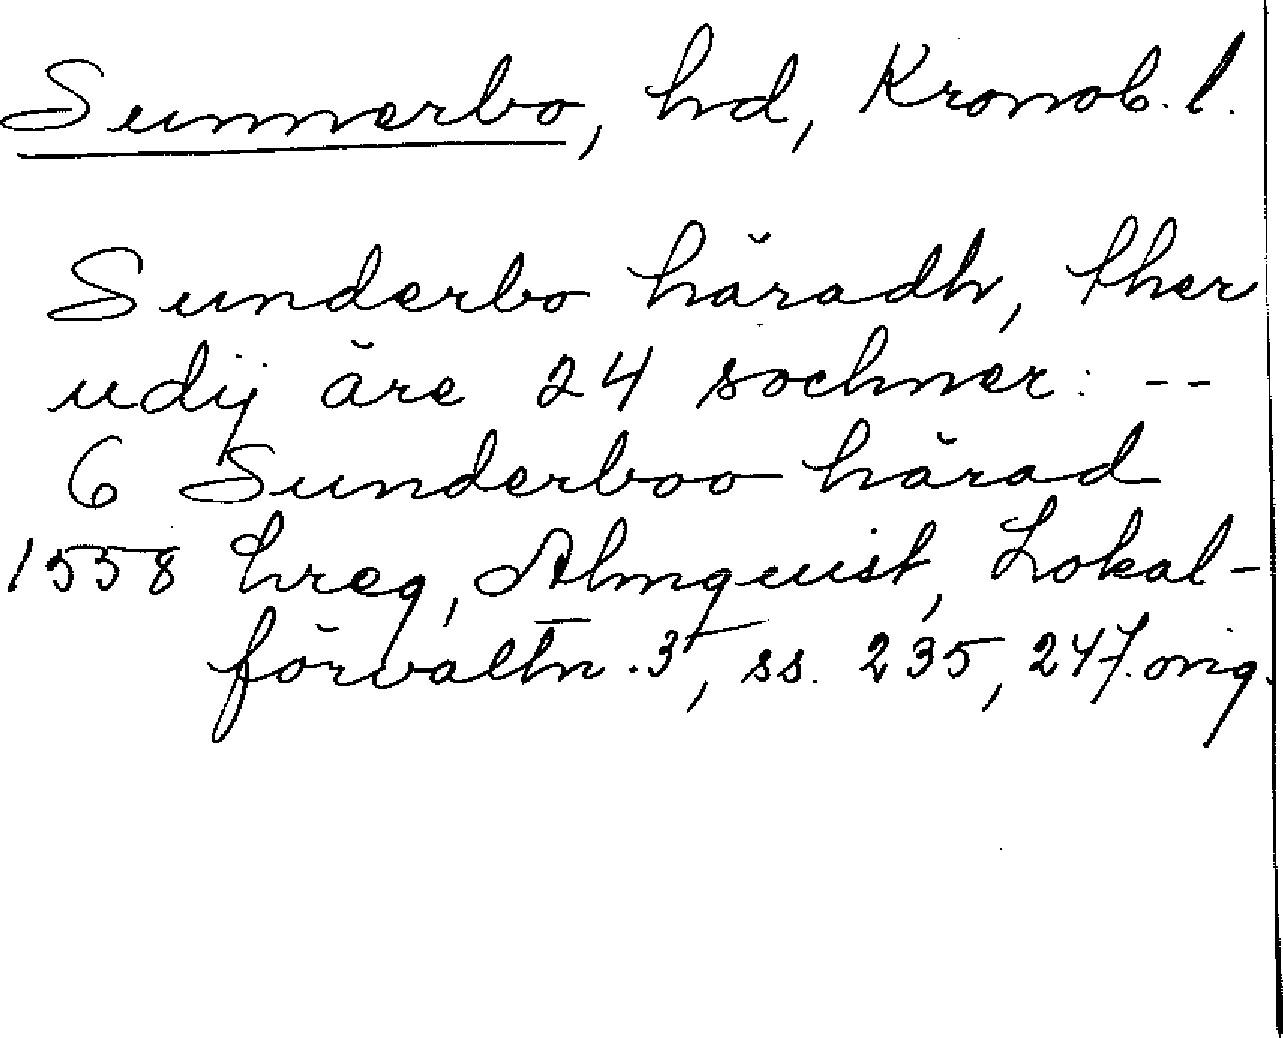 Sunnerbo, hd, Kronob. l.
Sunderbo häradh, ther
udij äre 24 sochner: --
6 Sunderboo härad
1558 hreg, Almquist, Lokal-
förvaltn. 3, ss. 235, 247. orig.